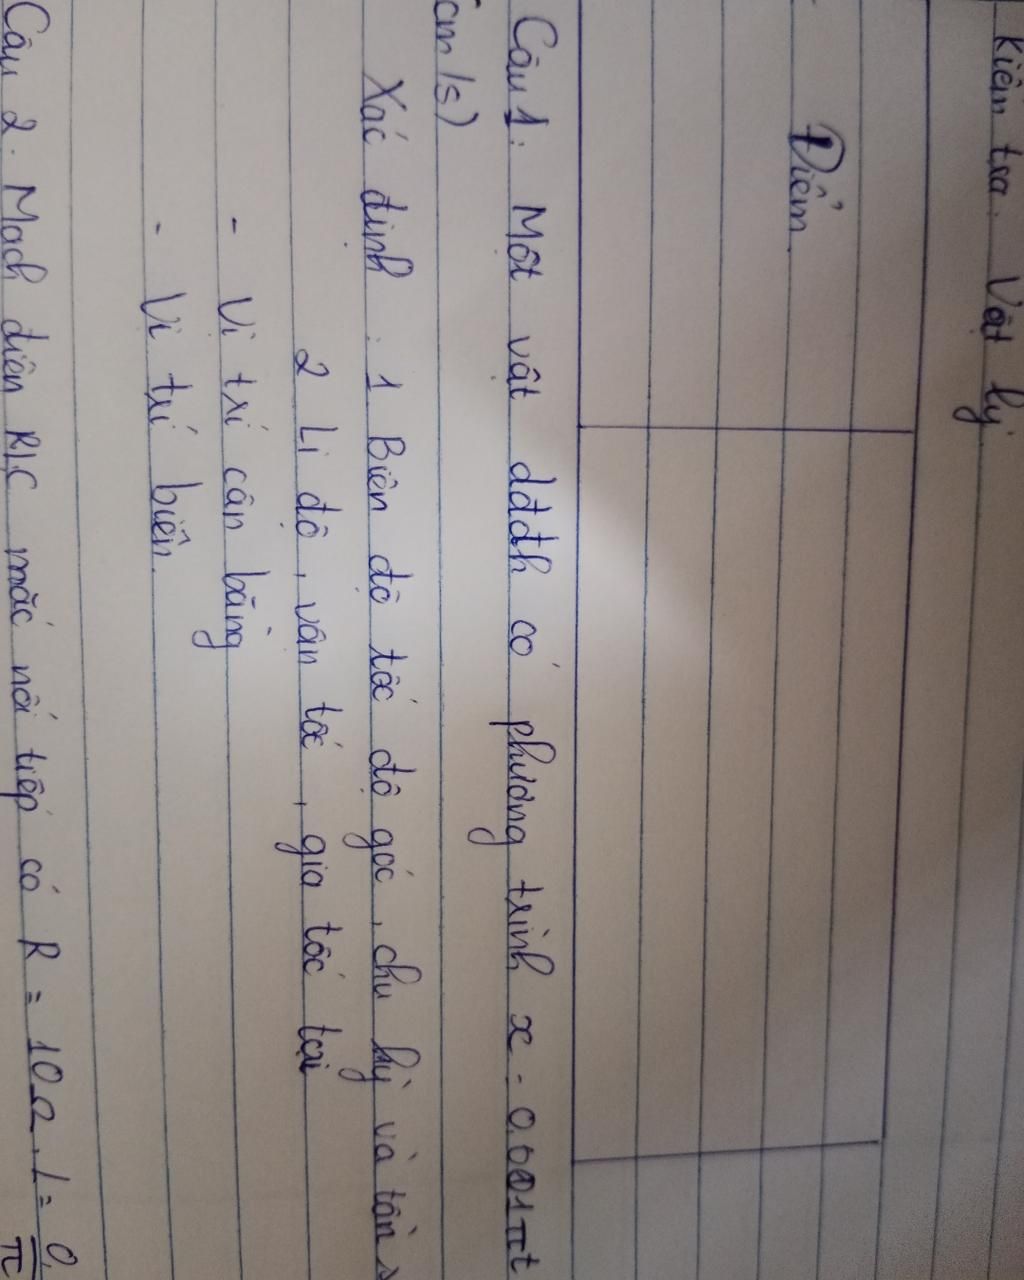 Kiểm tra. Vật lý
Điểm.
Câu 1. Một vật dđđh có phương trình x = 0,001πt
(cm/s)
Xác định. 1 Biên độ tốc độ góc, chu kỳ và tần s
2 Li độ, vân tốc, gia tốc tại
- Vi trí cân bằng
- Vi trí biên.
Câu 2. Mạch điện RLC mắc nối tiếp có R = 10Ω, L = 0,/π